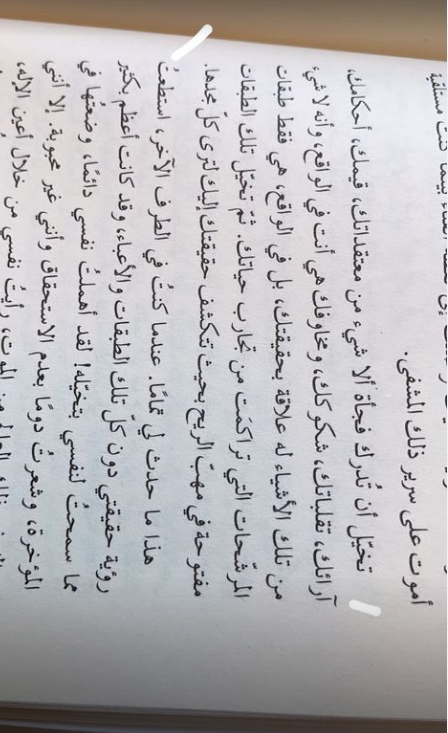 أموت على سرير ذلك المشفى.
تخيّل أن تُدرك فجأة ألا شيء من معتقداتك، قيمك، أحكامك،
آرائك، تقلباتك، شكوكك، ومخاوفك هي أنت في الواقع، وأنه لا شيء
من تلك الأشياء له علاقة بحقيقتك، بل في الواقع، هي فقط طبقات
المرشّحات التي تراكمَت من تجارب حياتك. ثمّ تخيّل تلك الطبقات
مفتوحة في مهبّ الريح بحيث تتكشف حقيقتك إليك لترى كلّ مجدها.
هذا ما حدث لي تمامًا. عندما كنتُ في الطرف الآخر، استطعتُ
رؤية حقيقتي دون كلّ تلك الطبقات والأعباء، وقد كانت أعظم بكثير
مما سمحتُ لنفسي بتخيّله! لقد أهملتُ نفسي دائمًا، وضعتُها في
المؤخرة، وشعرتُ دومًا بعدم الاستحقاق وأنني غير محبوبة. إلا أنني
من الموت، رأيتُ نفسي من خلال أعين الإله،